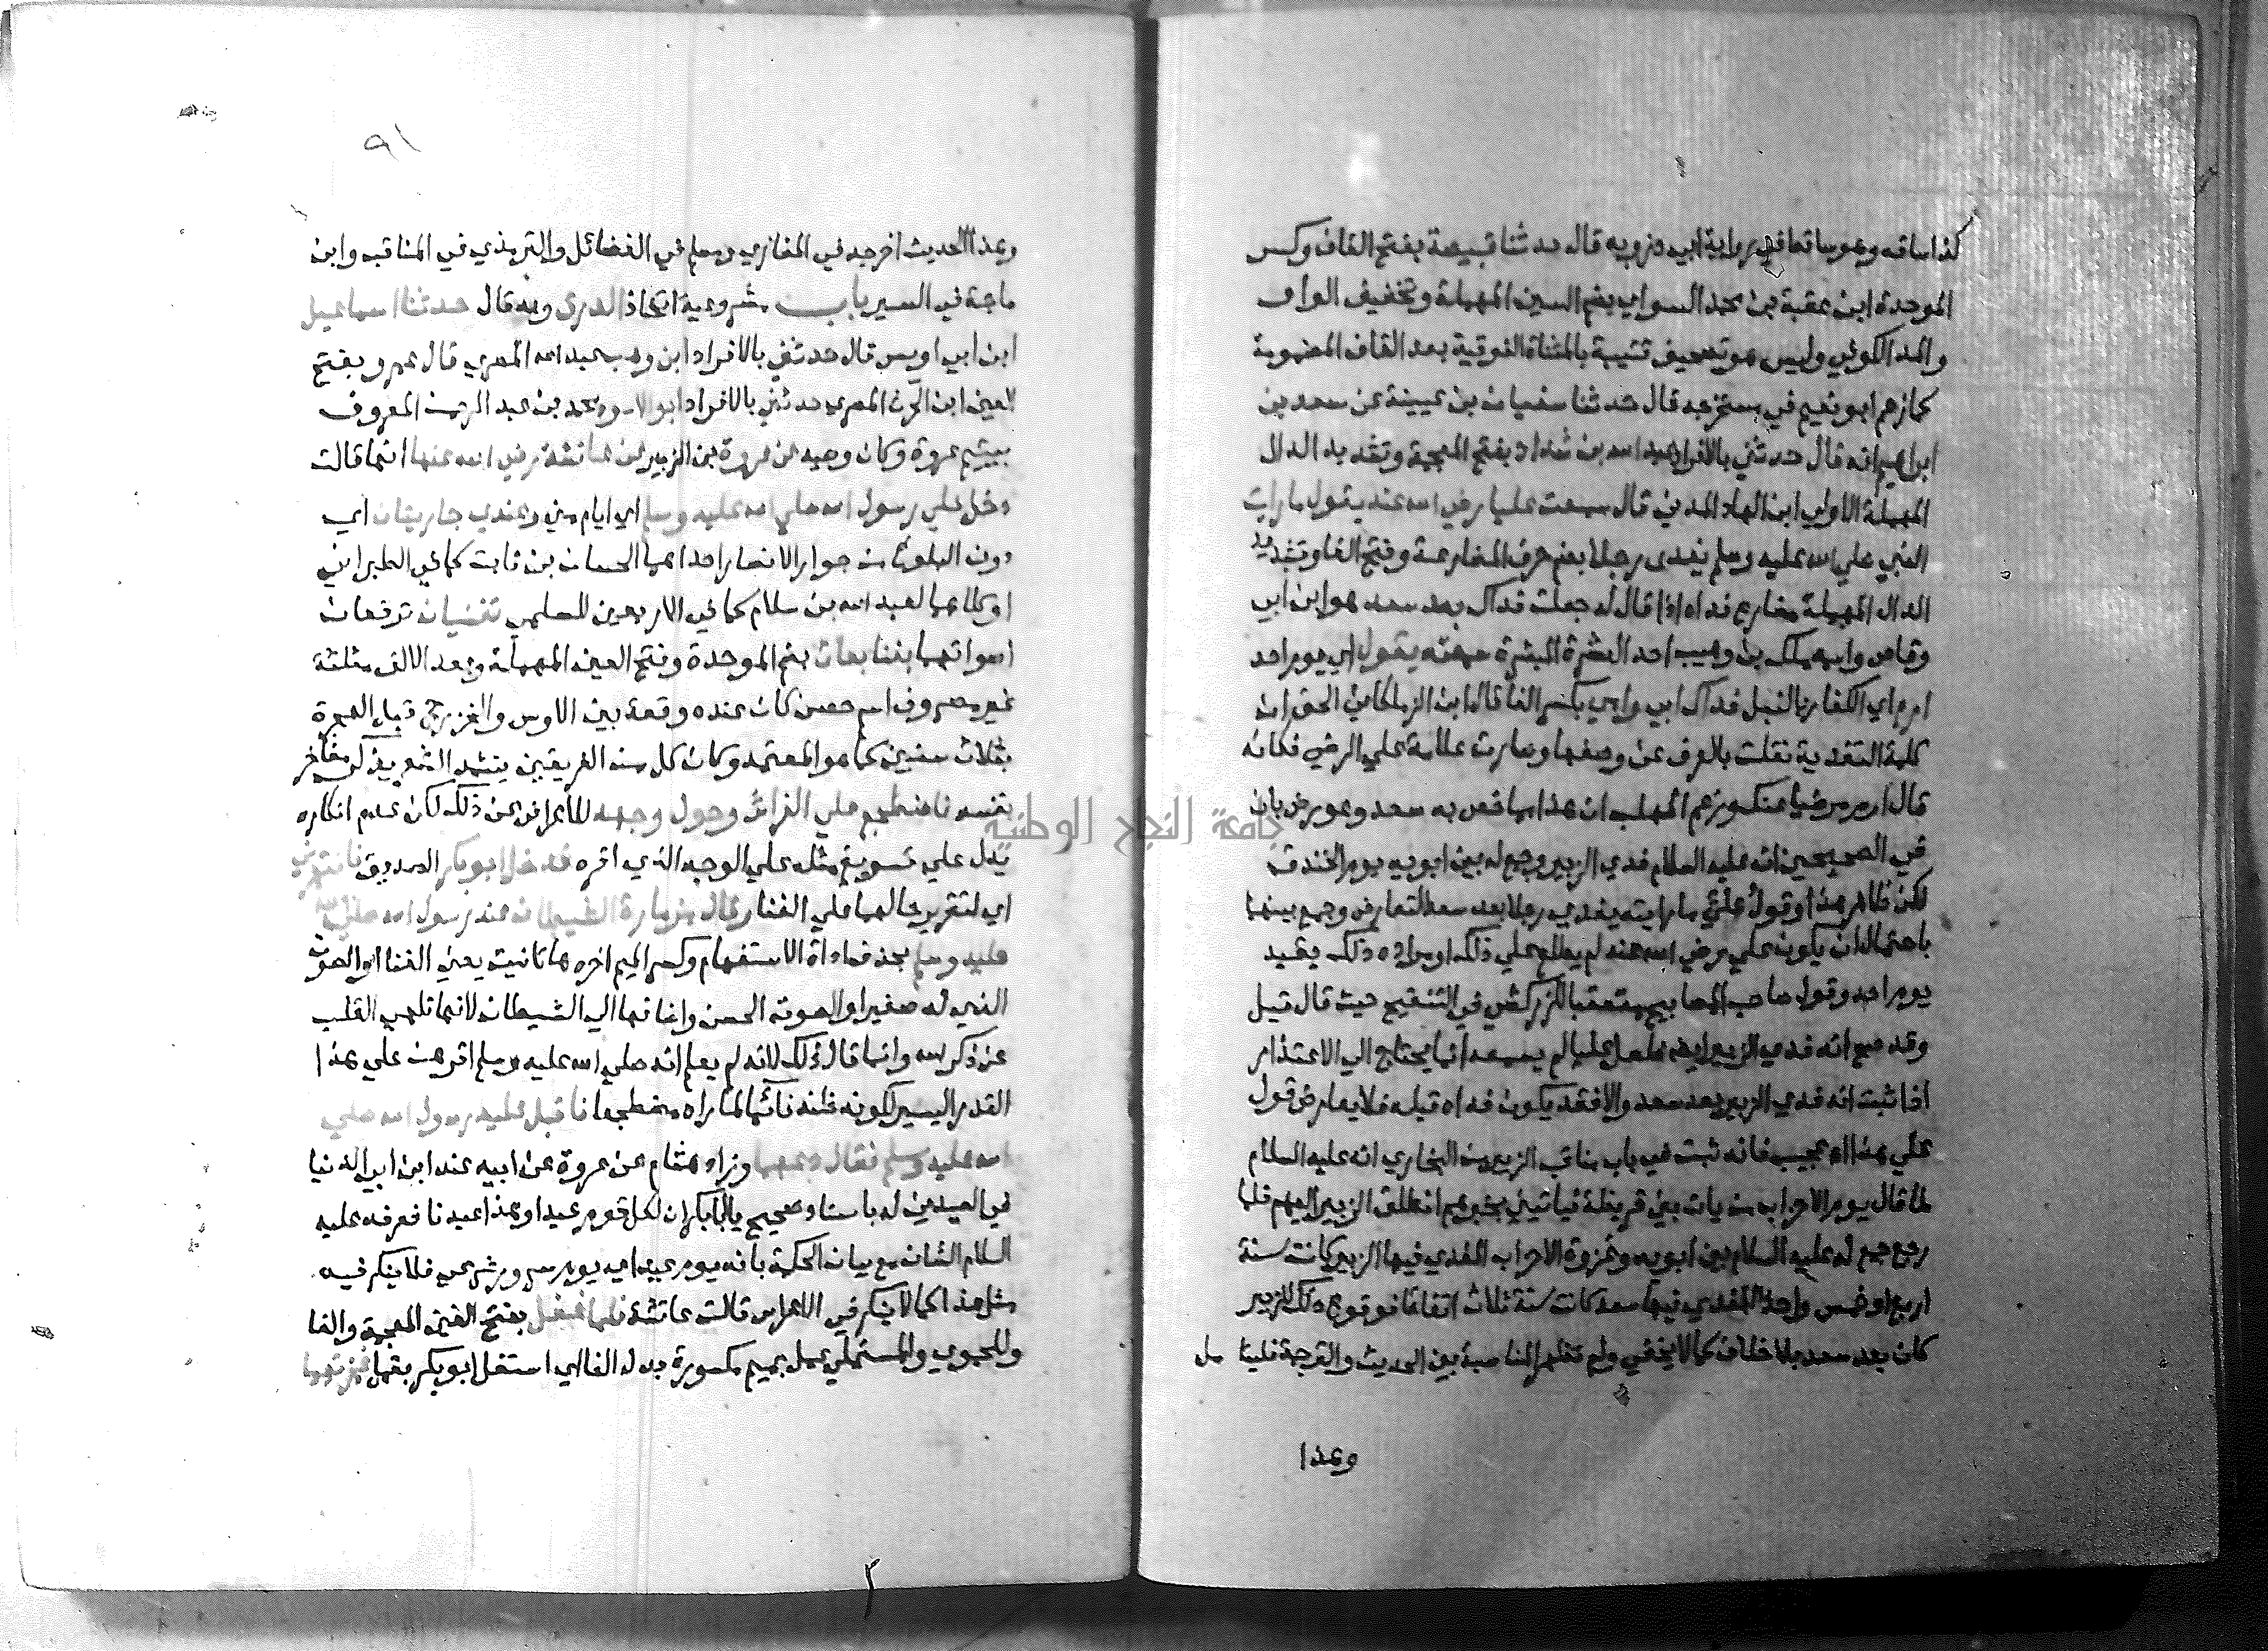 كذا ساقه وهو ساقط في رواية ابي ذر وبه قال حدثنا قبيصة بفتح القاف وكسر
الموحدة ابن عقبة بن محمد السواي بضم السين المهملة وتخفيف الواو
والمد الكوفي وليس هو تصحيف قتيبة بالمثناة الفوقية بعد القاف المضمومة
كما زعم ابو نعيم في مستخرجه قال حدثنا سفيان بن عيينة عن سعد بن
ابراهيم انه قال حدثني بالافراد عبد الله بن شداد بفتح المعجمة وتشديد الدال
المهملة الاولي ابن الهاد المدني قال سمعت عليا رضي الله عنه يقول ما رايت
النبي صلي الله عليه وسلم يفدى رجلا بضم حرف المضارعة وفتح الفا وتشديد
الدال المهملة مضارع فداه اذا قال له جعلت فداك بعد سعد هو ابن ابي
وقاص واسمه ملك بن وهيب احد العشرة المبشرة سمعته يقول اي يوم احد
ارم اي الكفار بالنبل فداك ابي وامي بكسر الفا قال ابن الزملكاني الحق ان
كلمة التفدية نقلت بالعرف عن وضعها وصارت علامة علي الرضي فكانه
قال ارم مرضيا عنك وزعم المهلب ان هذا مما خص به سعد وعورض بان
في الصحيحين انه عليه السلام فدي الزبير وجمع له بين ابويه يوم الخندق
لكن ظاهر هذا وقول علي ما رايته يفدي رجلا بعد سعد التعارض وجمع بينهما
باحتمال ان يكون علي رضي الله عنه لم يطلع علي ذلك او مراده ذلك بقيد
يوم احد وقول صاحب المصابيح متعقبا للزركشي في التنقيح حيث قال قيل
وقد صح انه فدي الزبير ايضا فلعل عليا لم يسمعه انما يحتاج الي الاعتذار
اذا ثبت انه فدي الزبير بعد سعد والا فقد يكون فداه قبله فلا يعارض قول
علي هذا اه عجيب فانه ثبت في باب مناقب الزبير من البخاري انه عليه السلام
لما قال يوم الاحزاب من يات بني قريظة فياتيني بخبرهم انطلق الزبير اليهم فلما
رجع جمع له عليه السلام بين ابويه وغزوة الاحزاب المفدي فيها الزبير كانت سنة
اربع او خمس واحد المفدي فيها سعد كانت سنة ثلاث اتفاقا فوقوع ذلك للزبير
كان بعد سعد بلا خلاف كما لا يخفي ولم تظهر المناسبة بين الحديث والترجمة فليتامل
وهذا
٩١
وهذا الحديث اخرجه في المغازي ومسلم في الفضائل والترمذي في المناقب وابن
ماجة في السير باب مشروعية اتخاذ الدرق وبه قال حدثنا اسماعيل
ابن ابي اويس قال حدثني بالافراد ابن وهب عبد الله المصري قال عمرو بفتح
العين ابن الحرث المصري حدثني بالافراد ابو الاسود محمد بن عبد الرحمن المعروف
بيتيم عروة وكان وصيه عن عروة بن الزبير عن عائشة رضي الله عنها انها قالت
دخل علي رسول الله صلي الله عليه وسلم اي ايام مني وعندي جاريتان اي
دون البلوغ من جوار الانصار احداهما لحسان بن ثابت كما في الطبراني
او كلاهما لعبد الله بن سلام كما في الاربعين للسلمي تغنيان ترفعان
اصواتهما بغنا بعاث بضم الموحدة وفتح العين المهملة وبعد الالف مثلثة
غير مصروف اسم حصن كان عنده وقعة بين الاوس والخزرج قبل الهجرة
بثلاث سنين كما هو المعتمد وكان كل من الفريقين ينشد الشعر يذكر مفاخر
نفسه فاضطجع علي الفراش وحول وجهه للاعراض عن ذلك لكن عدم انكاره
يدل علي تسويغ مثله علي الوجه الذي اقره فدخل ابو بكر الصديق فانتهرني
اي لتقريري لهما علي الغنا وقال مزمارة الشيطان عند رسول الله صلي الله
عليه وسلم بحذف اداة الاستفهام وكسر الميم اخره ها تانيث يعني الغنا او الصوت
الذي له صفير او الصوت الحسن واضافها الي الشيطان لانها تلهي القلب
عن ذكر الله وانما قال ذلك لانه لم يعلم انه صلي الله عليه وسلم اقرهن علي هذا
القدر اليسير لكونه ظنه نائما لما راه مضطجعا فاقبل عليه رسول الله صلي
الله عليه وسلم فقال دعهما وزاد هشام عن عروة عن ابيه عند ابن ابي الدنيا
في العيدين له باسناد صحيح يا ابا بكر ان لكل قوم عيدا وهذا عيدنا فعرفه عليه
السلام الشان مع بيان الحكمة بانه يوم عيد اي يوم سرور شرعي فلا ينكر فيه
مثل هذا كما لا ينكر في الاعراس قالت عائشة فلما غفل بفتح الغين المعجمة والفا
وللحموي والمستملي عمل بميم مكسورة بدل الفا اي اشتغل ابو بكر بعمل غمزتهما
جامعة النجاح الوطنية